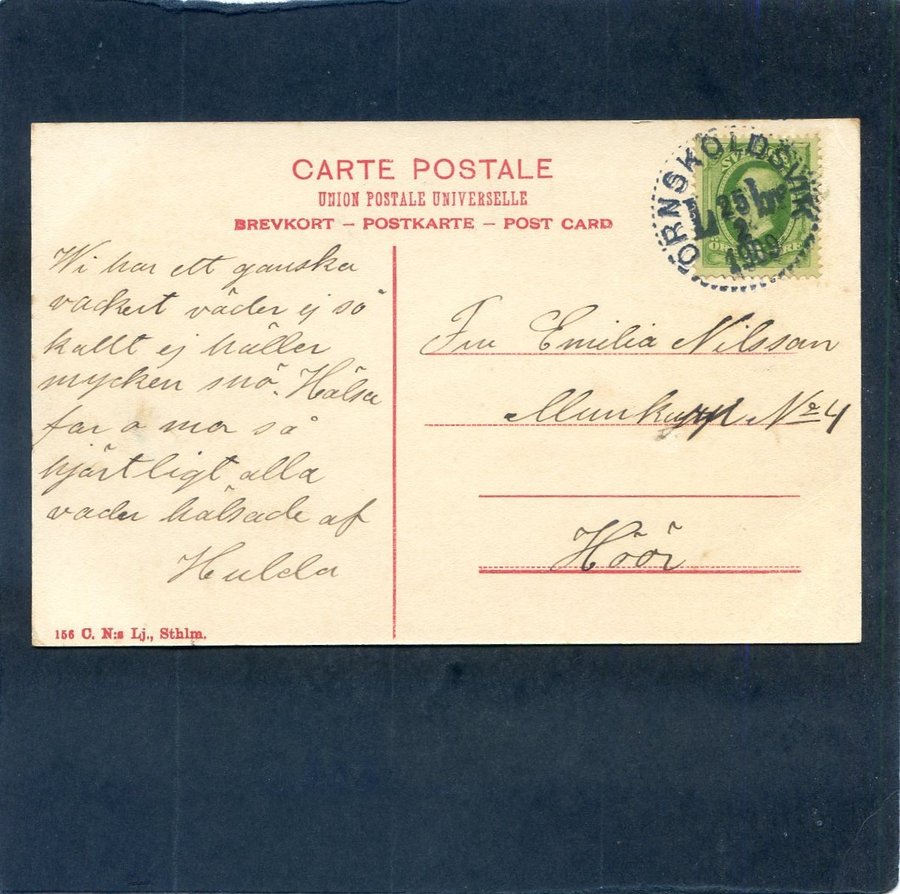 CARTE POSTALE
UNION POSTALE UNIVERSELLE
BREVKORT – POSTKARTE – POST CARD
ÖRNSKÖLDSVIK
25
2
1909
Wi har ett ganska
vackert väder ej så
kallt ej häller
mycken snö. Hälsa
far o mor så
hjärtligt alla
vader hälsade af
Hulda
Fru Emilia Nilsson
No 4
Höör
156 C. N:s Lj., Sthlm.